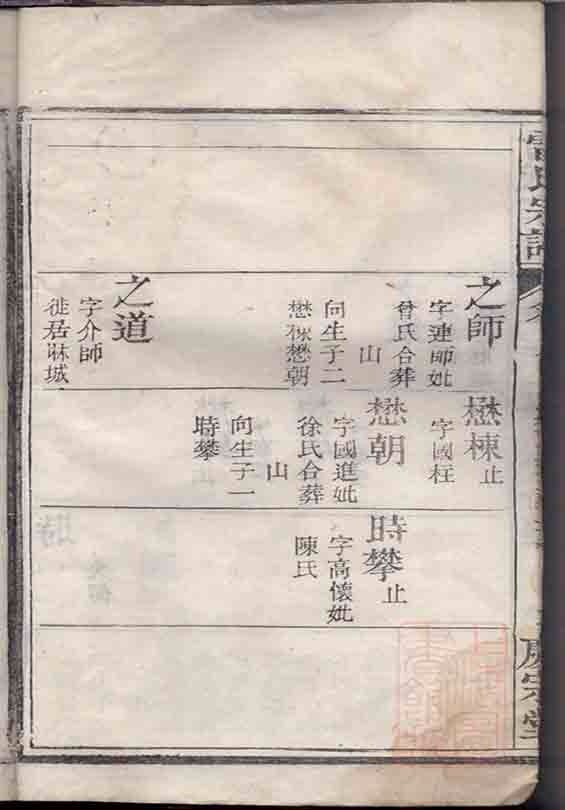 之師
字連師妣
曾氏合葬
山
向生子二
懋棟懋朝
之道
字介師
徙居麻城
懋棟止
字國柱
懋朝
字國進妣
徐氏合葬
山
向生子一
時攀
時攀止
字高懷妣
陳氏
氏宗譜